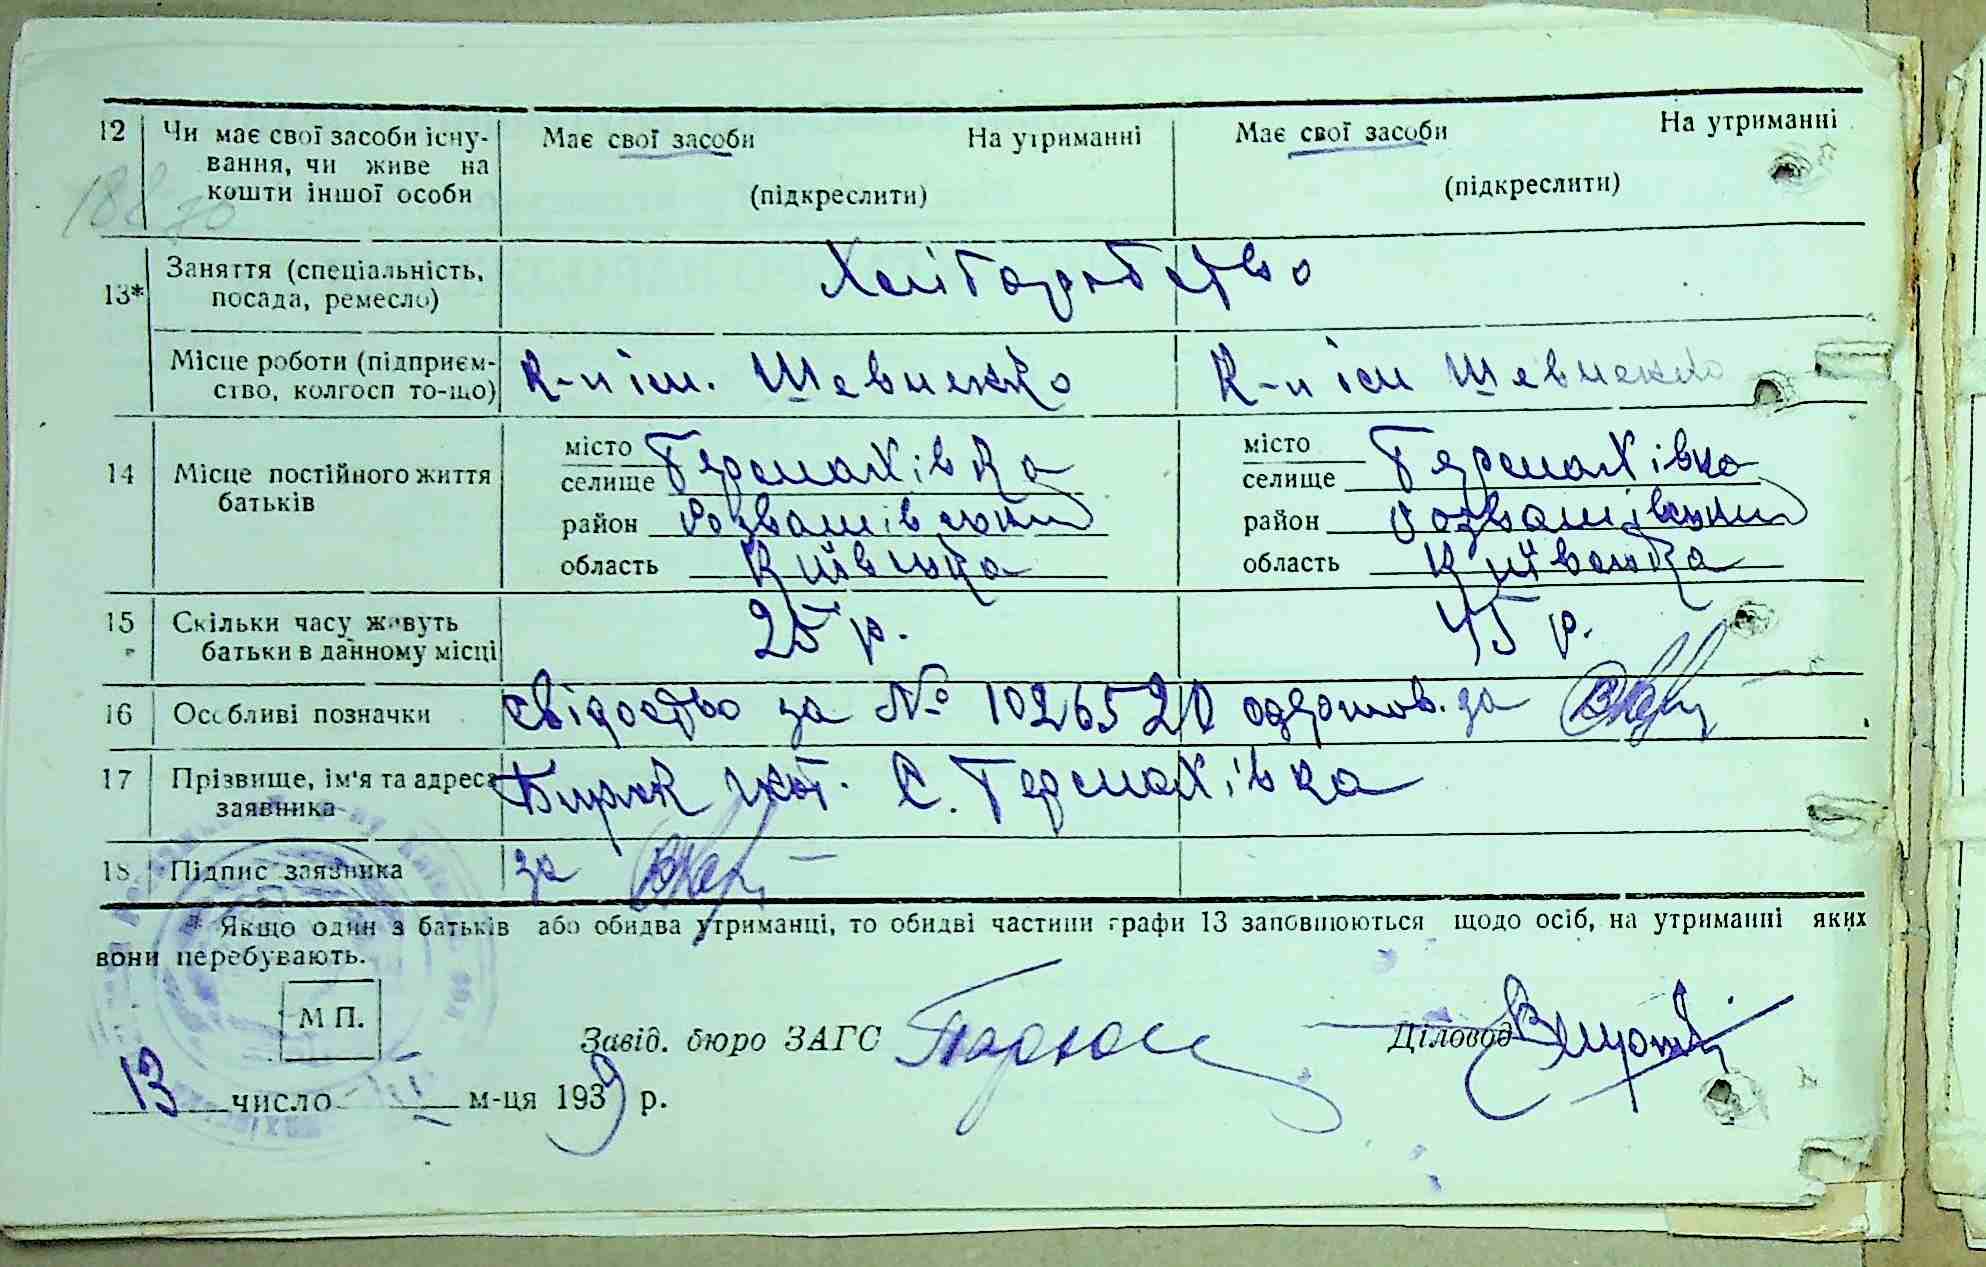 12 Чи має свої засоби існу- Має свої засоби На утриманні Має свої засоби На утриманні
вання, чи живе на
кошти іншої особи (підкреслити) (підкреслити)
13* Заняття (спеціальність, Хліборобство
посада, ремесло)
Місце роботи (підприєм- К-п ім. Шевченко К-п ім Шевченко
ство, колгосп то-що)
14 Місце постійного життя місто Термахівка місто Термахівка
батьків селище селище
район Розважівський район Розважівський
область Київська область Київська
15 Скільки часу живуть 25 р. 45 р.
батьки в данному місці
16 Особливі позначки Свідоство за № 1026520 одержов. за
17 Прізвище, ім'я та адреса С. Термахівка
заявника
18 Підпис заявника за
* Якщо один з батьків або обидва утриманці, то обидві частини графи 13 заповнюються щодо осіб, на утриманні яких
вони перебувають.
М П.
Завід. бюро ЗАГС Діловод
13 число м-ця 1939 р.